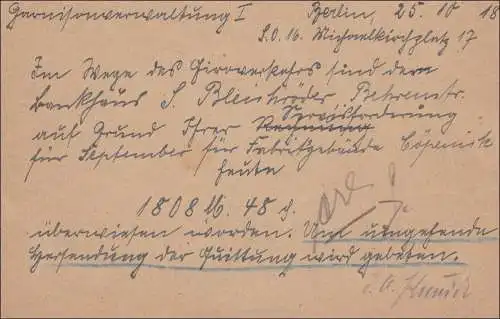 Garnisonverwaltung I Berlin, 25. 10 18
S.O. 16. Michaelkirchplatz 17
Im Wege des Giroverkehrs sind dem
Bankhaus S. Bleichröder Behrenstr.
Servisforderung
auf Grund Ihrer Rechnung
für September für Fabrikgebäude Cöpenick
heute
1808 M. 48 d.
überwiesen worden. Um umgehende
Hersendung der Quittung wird gebeten.